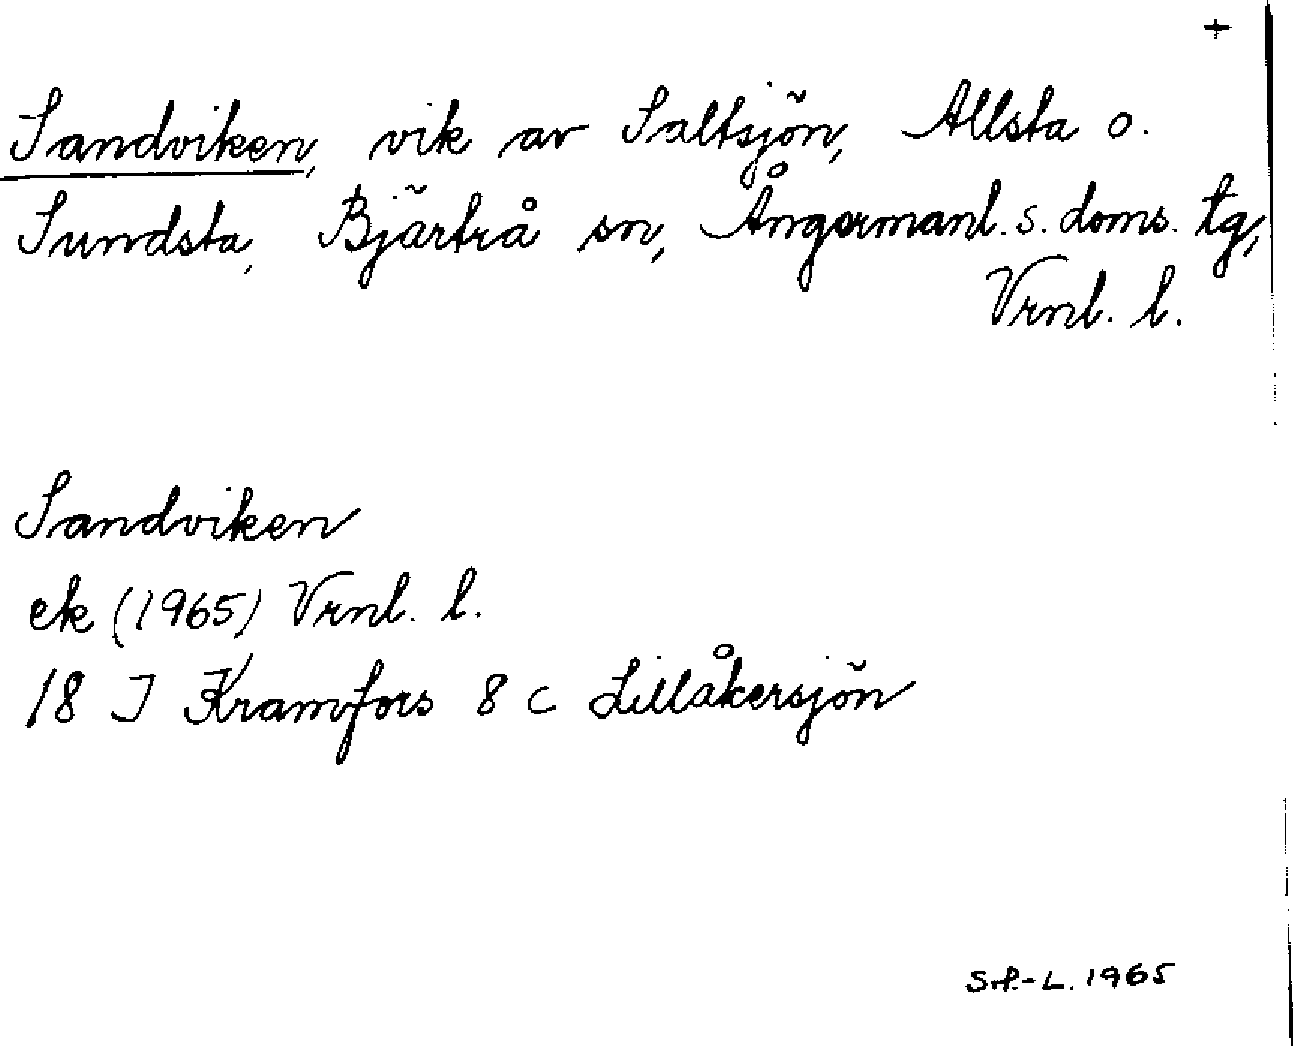 +
Sandviken, vik av Saltsjön, Allsta o.
Sundsta, Bjärtrå sn, Ångermanl. s. doms. tg,
Vrnl. l.
Sandviken
ek (1965) Vrnl. l.
18 J Kramfors 8 c Lillåkersjön
S.P.-L. 1965